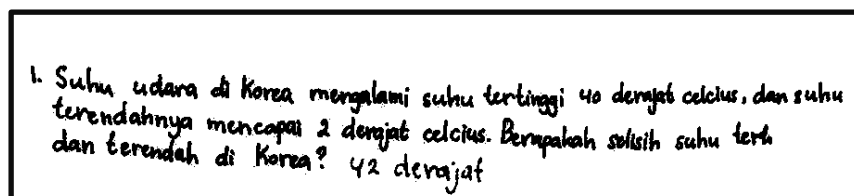 1. Suhu udara di Korea mengalami suhu tertinggi 40 derajat celcius, dan suhu
terendahnya mencapai 2 derajat celcius. Berapakah selisih suhu terti
dan terendah di Korea? 42 derajat